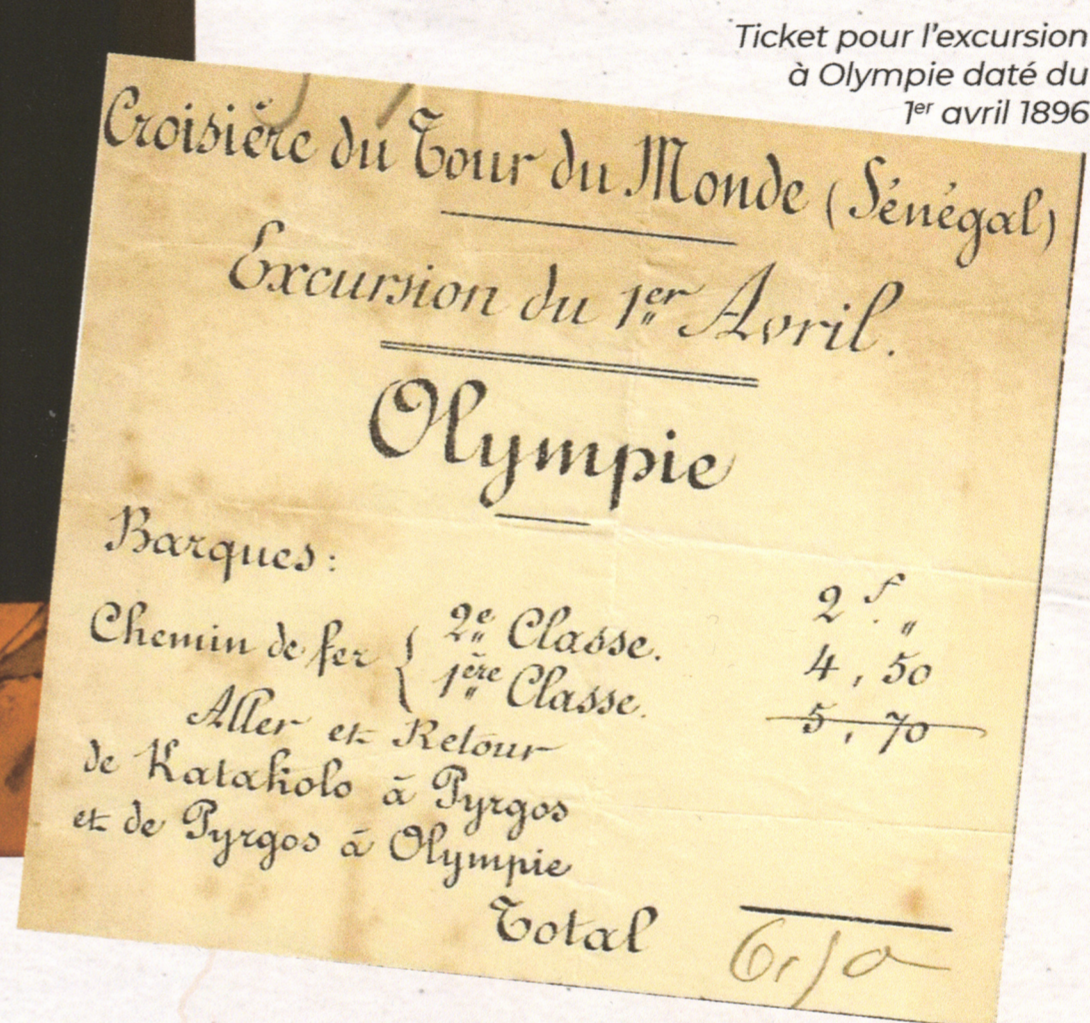 Ticket pour l'excursion
à Olympie daté du
1er avril 1896
Croisière du Tour du Monde (Sénégal)
Excursion du 1er Avril.
Olympie
Barques: 2 f. "
Chemin de fer { 2e Classe. 4,50
1ère Classe. 5,70
Aller et Retour
de Katakolo à Pyrgos
et de Pyrgos à Olympie
Total 6,50